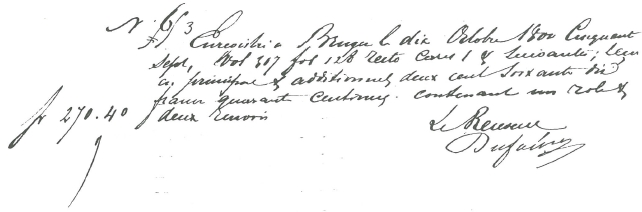 N. 6/3
Enregistré à Bruges le dix Octobre 1800 Cinquante
Sept, Vol 317 fol 128 recto Case 1 & suivante; reçu
en principal & additionnels deux cent soixante dix
francs quarante centimes. contenant un role &
fr 270.40 deux renvois
Le Receveur